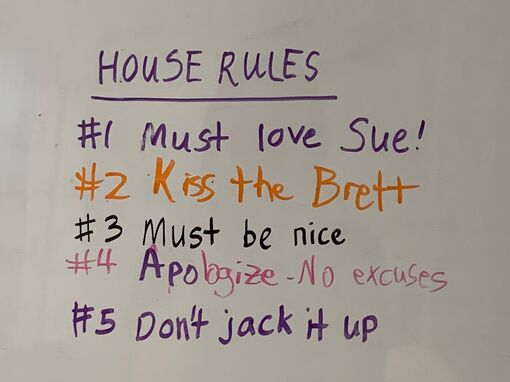 HOUSE RULES
#1 Must love Sue!
#2 Kiss the Brett
#3 Must be nice
#4 Apologize - No excuses
#5 Don't jack it up